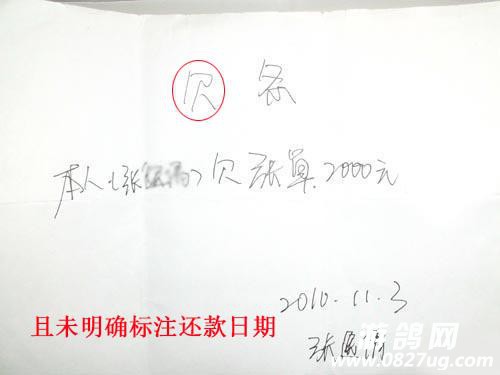 欠条
本人(张 )欠张单.2000元
2010.11.3
且未明确标注还款日期
张
www.0827ug.com